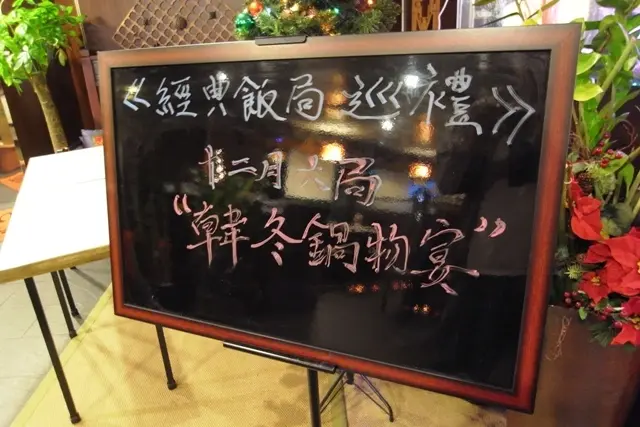 《經典飯局巡禮》
十二月大局
"韓冬鍋物宴"